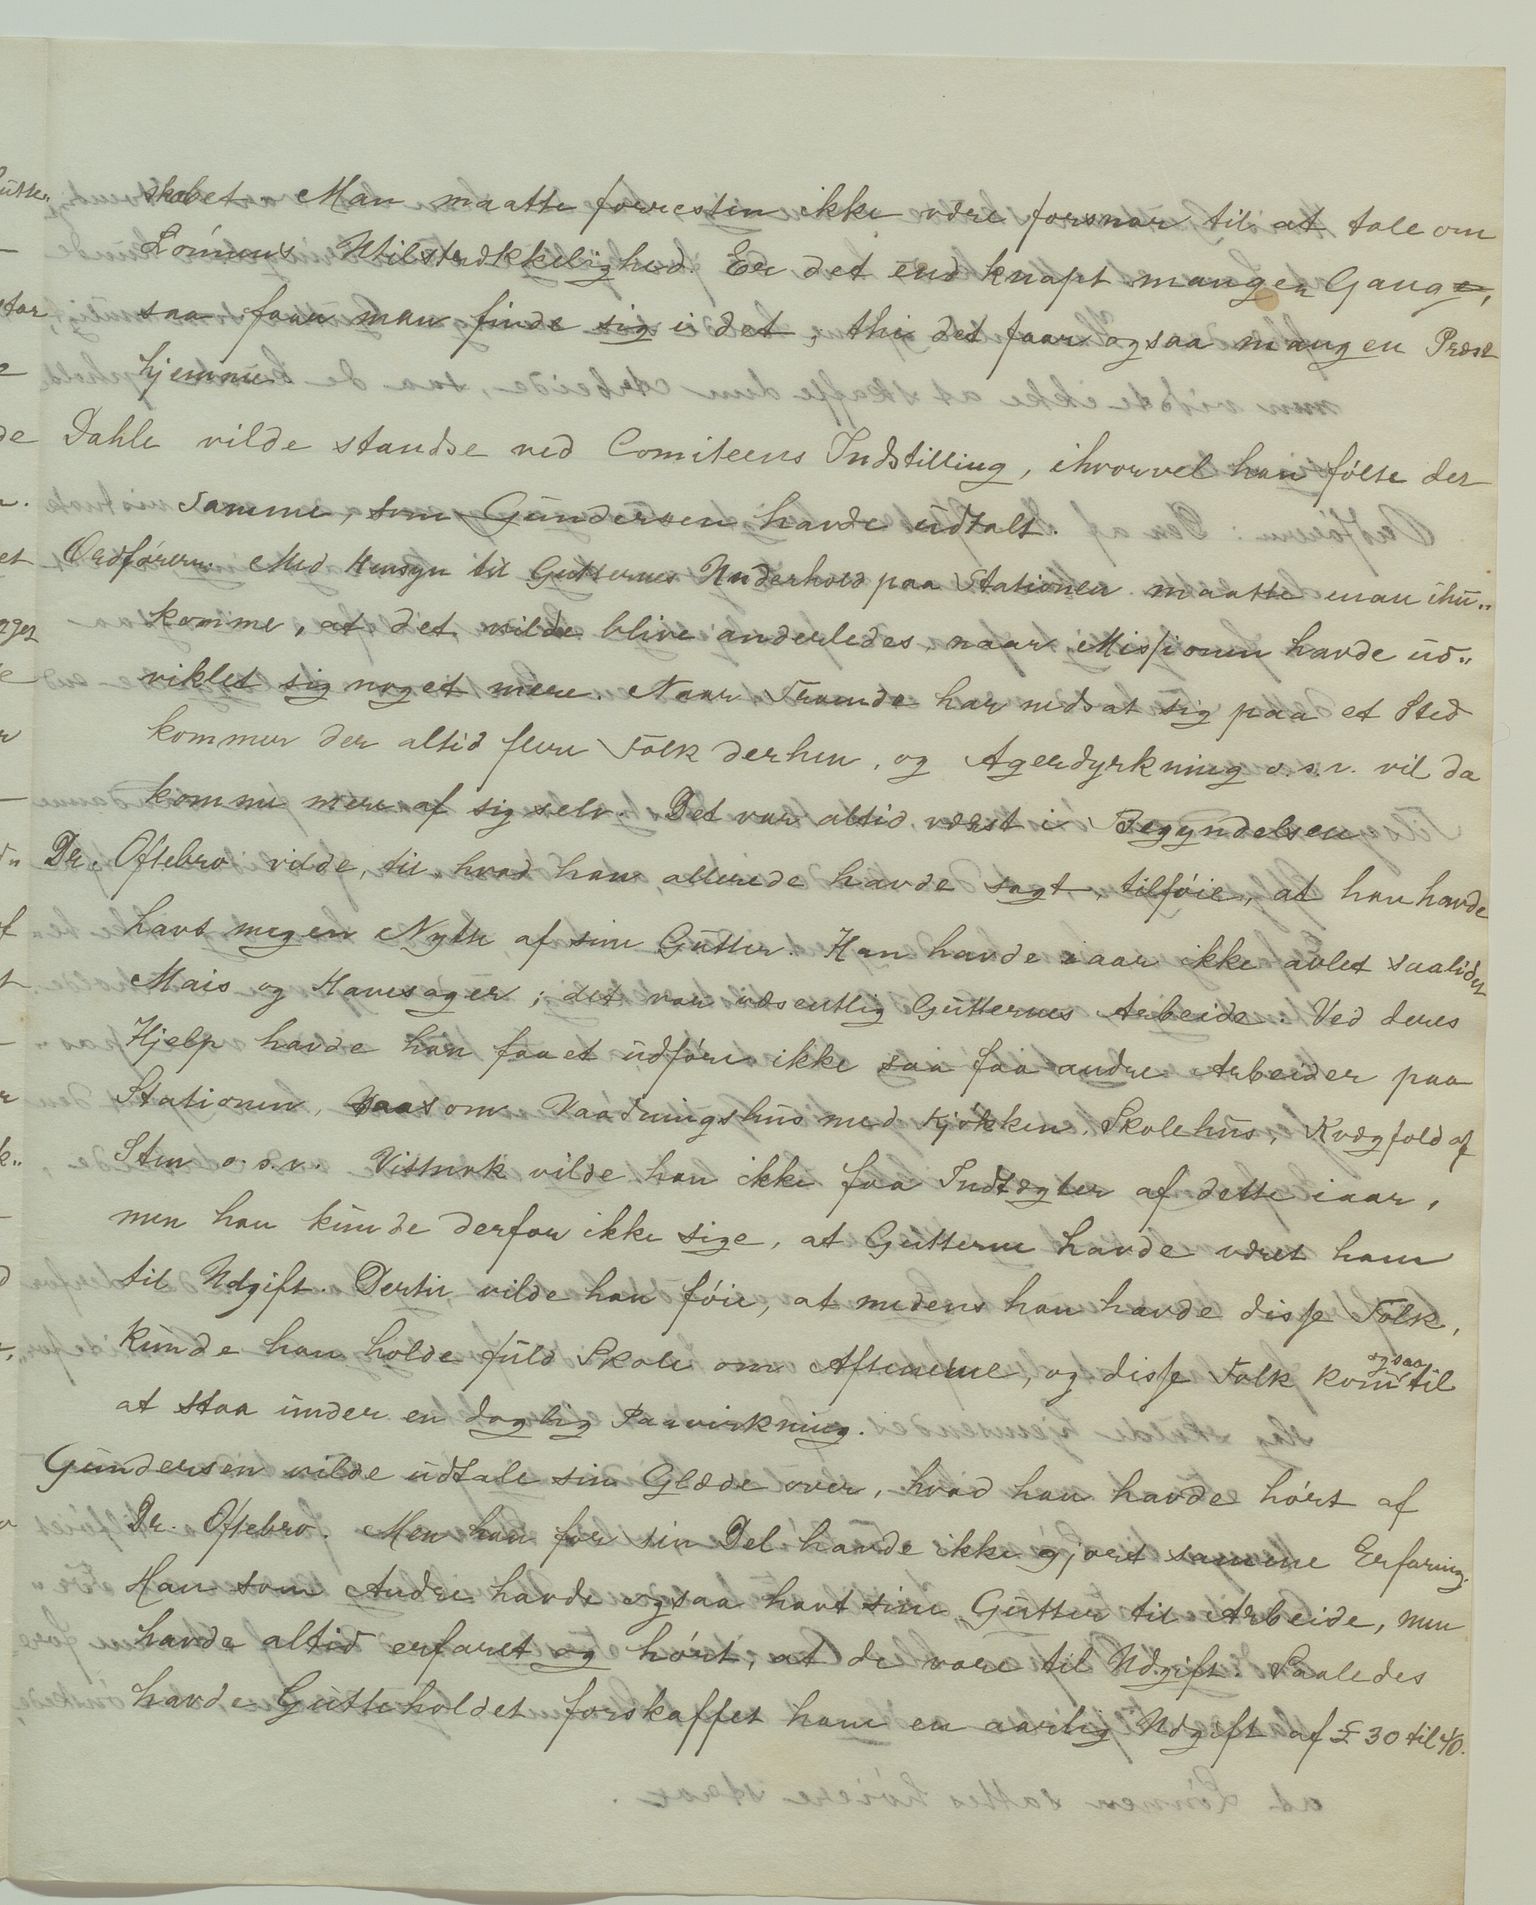 skabet. Man maatte forresten ikke være forsnar til at tale om
Lönnens Utilstrækkelighed. Er det end knapt mangen Gang,
saa faar man finde sig i det, thi det faar ogsaa mangen Præst
hjemme
Dahle vilde standse ved Comiteens Indstilling, ihvorvel han følte det
samme, som Gundersen havde udtalt.
Ordføreren: Med Hensyn til Gutternes Underhold paa Stationen maatte man ihu-
komme, at det vilde blive anderledes, naar Missionen havde ud-
viklet sig noget mere. Naar Fremde har nedsat sig paa et Sted
kommer der altid flere Folk derhen, og Agerdyrkning o.s.v. vil da
komme mere af sig selv. Det var altid værst i Begyndelsen
Dr. Oftebro vilde, til hvad han allerede havde sagt, tilføie, at han havde
havt megen Nytte af sine Gutter. Han havde iaar ikke avlet saalidet
Mais og Havesager; det var væsentlig Gutternes Arbeide. Ved deres
Hjelp havde han faaet udføre ikke saa faa andre Arbeider paa
Stationen, saasom Vaaningshus med Kjøkken, Skolehus, Kvægfold af
Sten o.s.v. Vistnok vilde han ikke faa Indtægter af dette iaar,
men han kunde derfor ikke sige, at Gutterne havde været ham
til Udgift. Dertil vilde han føie, at medens han havde disse Folk,
kunde han holde fuld Skole om Aftenerne, og disse Folk kom ogsaa til
at staa under en daglig Paavirkning.
Gundersen vilde udtale sin Glæde over, hvad han havde hørt af
Dr. Oftebro. Men han for sin Del havde ikke gjort samme Erfaring.
Han som Andre havde ogsaa havt sine Gutter til Arbeide, men
havde altid erfaret og hørt, at de vare til Udgift. Saaledes
havde Gutteholdet forskaffet ham en aarlig Udgift af £ 30 til 40.